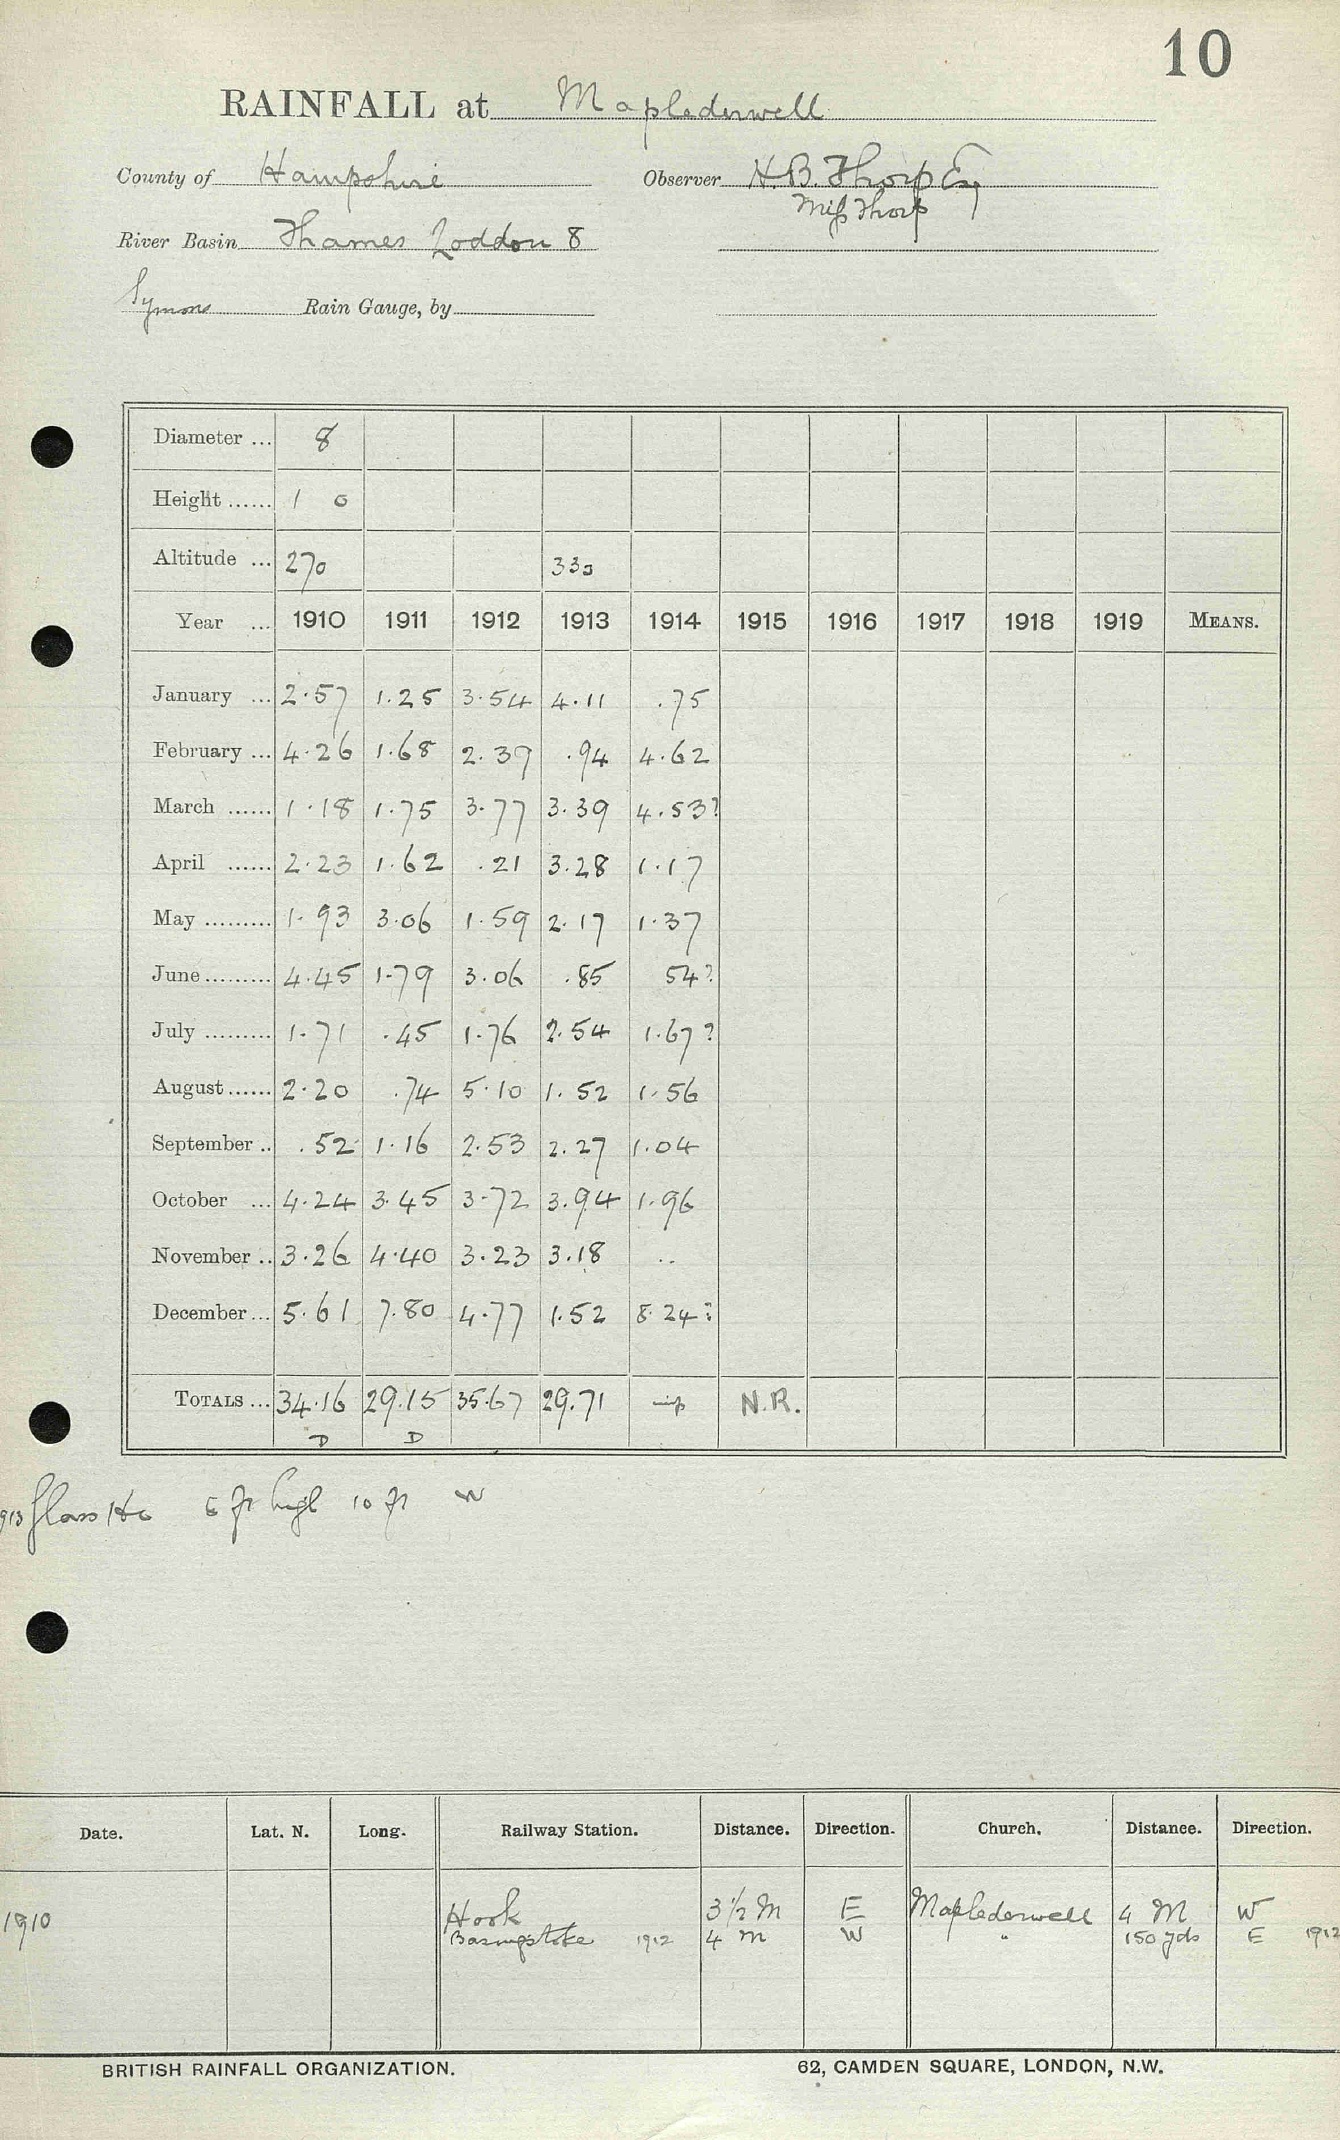 10
RAINFALL at Maplederwell
County of Hampshire Observer H.B. Thorp Esq
Miss Thorp
River Basin Thames Loddon 8
Symons Rain Gauge, by
Diameter ... 8
Height ...... 1 0
Altitude ... 270 330
Year ... 1910 1911 1912 1913 1914 1915 1916 1917 1918 1919 MEANS.
January ... 2.57 1.25 3.54 4.11 .75
February ... 4.26 1.68 2.39 .94 4.62
March ...... 1.18 1.75 3.77 3.39 4.53?
April ...... 2.23 1.62 .21 3.28 1.17
May ......... 1.93 3.06 1.59 2.17 1.37
June ......... 4.45 1.79 3.06 .85 54?
July ......... 1.71 .45 1.76 2.54 1.67?
August ...... 2.20 .74 5.10 1.52 1.56
September .. .52 1.16 2.53 2.27 1.04
October ... 4.24 3.45 3.72 3.94 1.96
November .. 3.26 4.40 3.23 3.18 ..
December ... 5.61 7.80 4.77 1.52 8.24?
TOTALS ... 34.16 29.15 35.67 29.71 N.R.
D D
1913 Glass Ho 6 ft high 10 ft W
Date. Lat. N. Long. Railway Station. Distance. Direction. Church. Distance. Direction.
1910 Hook 3 1/2 M E Maplederwell 4 M W
Basingstoke 1912 4 M W " 150 yds E 1912
BRITISH RAINFALL ORGANIZATION. 62, CAMDEN SQUARE, LONDON, N.W.